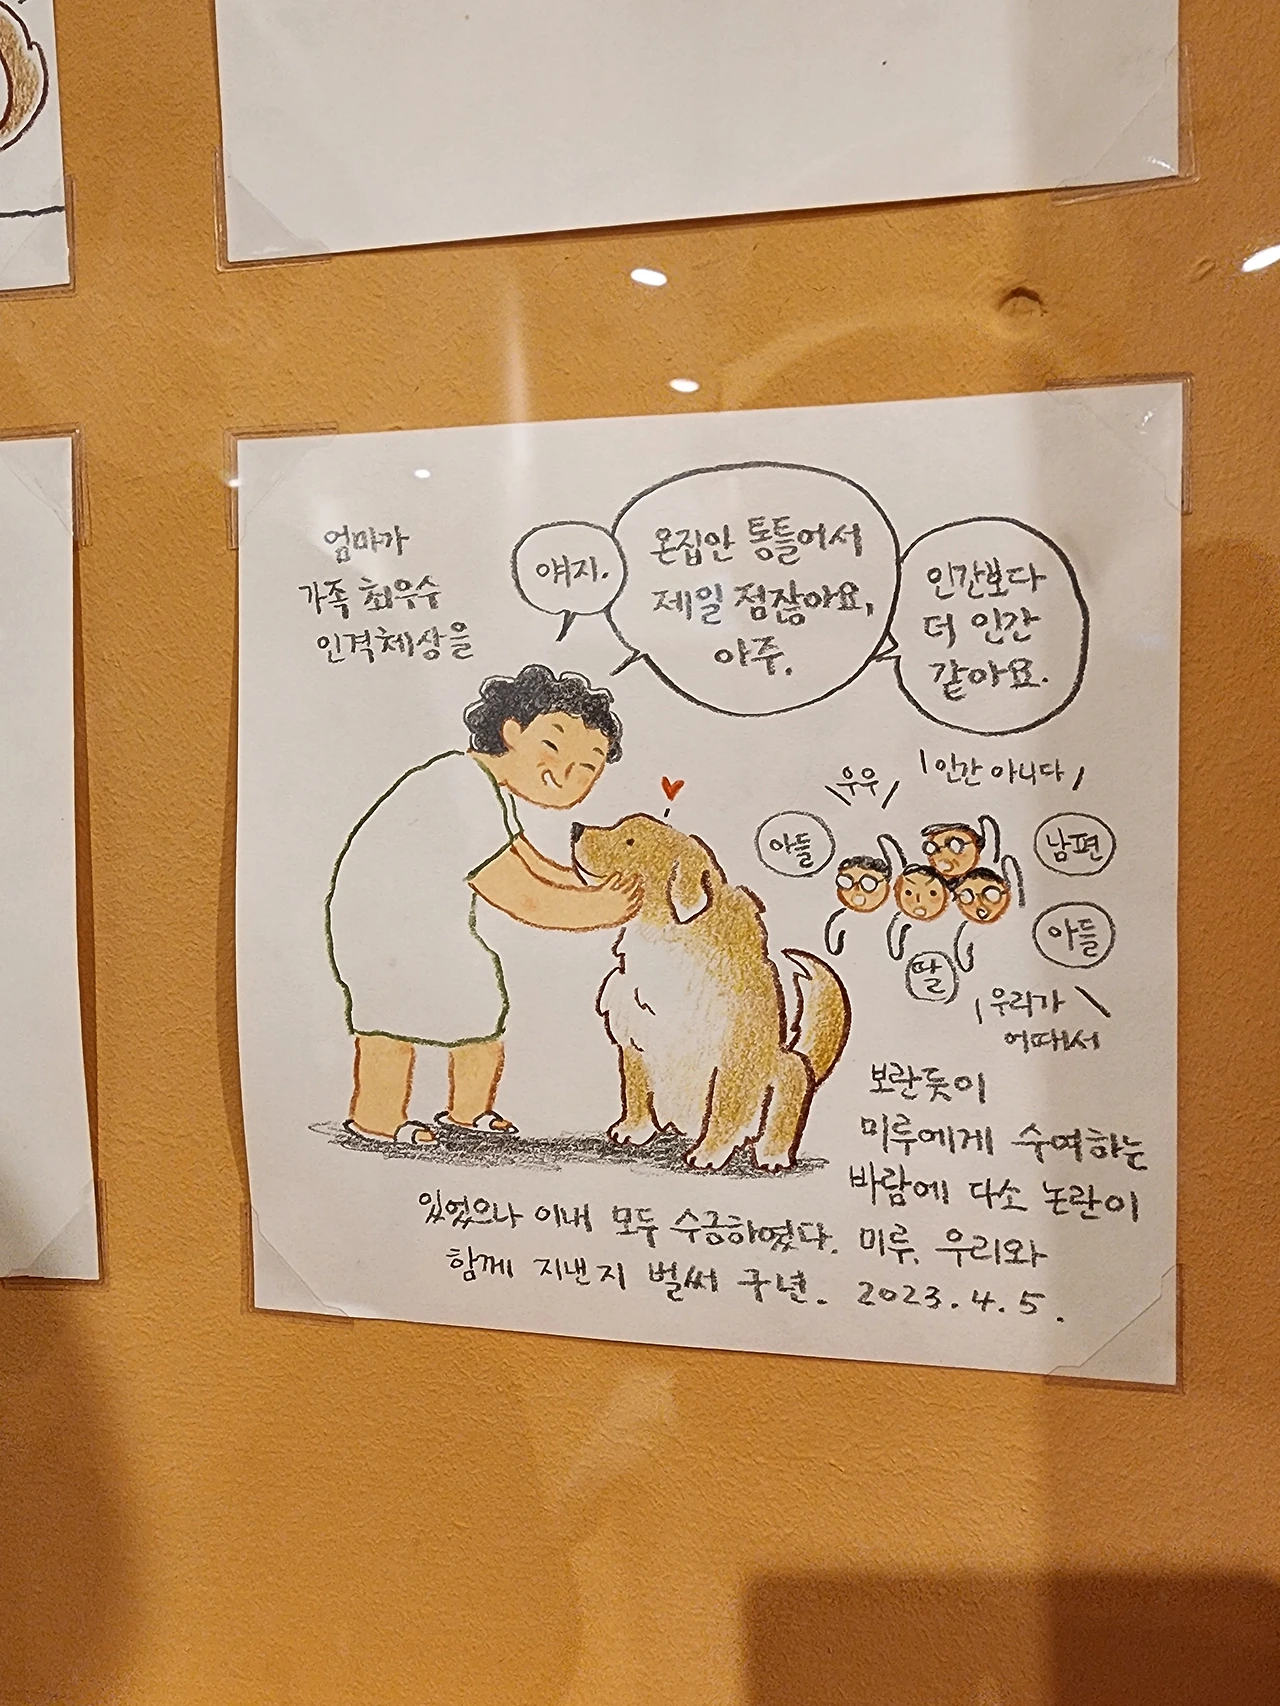 엄마가
가족 최우수
인격체상을
얘지.
온집안 통틀어서
제일 점잖아요,
아주.
인간보다
더 인간
같아요.
우우
인간 아니다
아들
남편
아들
딸
우리가
어때서
보란듯이
미루에게 수여하는
바람에 다소 논란이
있었으나 이내 모두 수긍하였다. 미루, 우리와
함께 지낸지 벌써 구년. 2023.4.5.